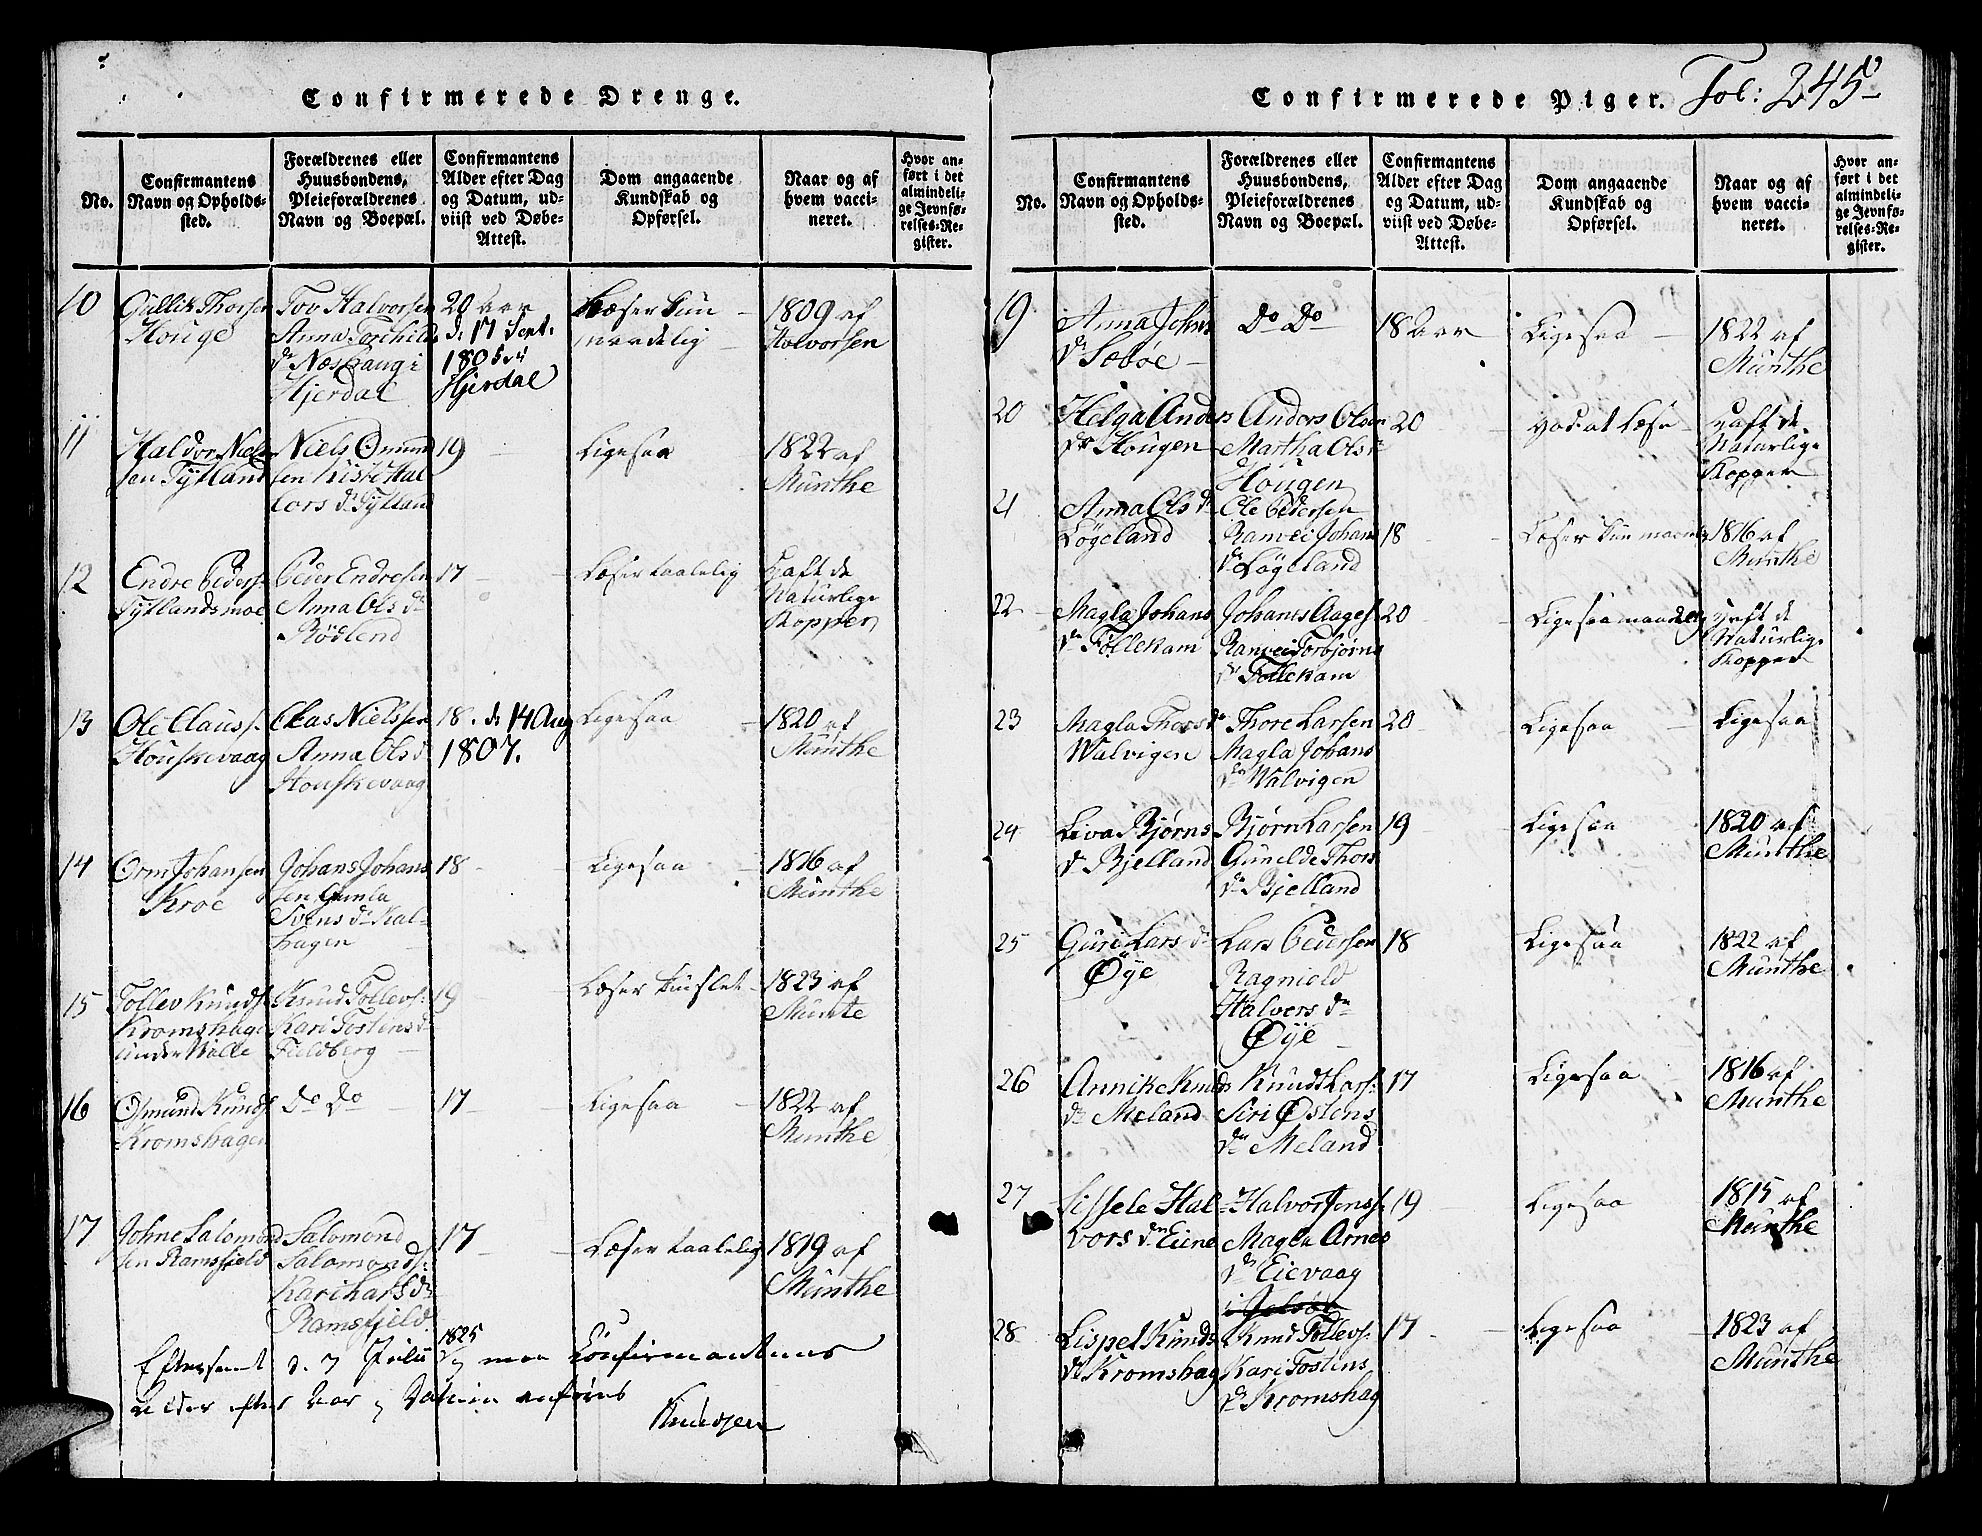 Confirmerede Drenge.
No.
Confirmantens Navn og Opholdssted.
Forældrenes eller Huusbondens, Pleieforældrenes Navn og Boepæl.
Confirmantens Alder efter Dag og Datum, udviist ved Døbe-Attest.
Dom angaaende Kundskab og Opførsel.
Naar og af hvem vaccineret.
Hvor anført i det almindelige Jevnførelses-Register.
10
Gullik Thorsen
Houge
Tov Halvorsen
Anna Torchilds
dr Næshaug i
Hjerdal
20 Aar
d. 17 Sept.
1805
Hjerdal
Læser kun
maadelig
1809 af
Halvorsen
11
Haldor Niel
sen Tytland
Niels Omund
sen Kisti Hal
vors dr Tytland
19
Ligesaa
1822 af
Munthe
12
Endre Peders:
Tytlandsmoe
Peder Endresen
Anna Ols dr
Rødlend
17
Læser taalelig
Haft de
Naturlige
Kopper
13
Ole Clauss:
Houskevaag
Claas Nielssen
Anna Ols d
Houskevaag
18. d. 14 Aug
1807.
Ligesaa
1820 af
Munthe
14
Orm Johansen
Kroe
Johans Johans
sen Gunla
Svens dr Kal-
hagen
18
Ligesaa
1816 af
Munthe
15
Tollev Knuds:
Kromshage
under Walle
Knud Tollevs:
Kari Tostins d
Fieldberg
19
Læser kun slet
1823 af
Munte
16
Osmund Knuds
Kromshagen
Do Do
17
Ligesaa
1822 af
Munthe
17
Johne Salomond
sen Ramsfield
Salomond
Salomonds:
Kari Lars d
Ramsfjeld
17
Læser taalelig
1819 af
Munthe
Efterseet d. 7 Julii 1825
og maa Confirmantens
Alder efter Aar og Datum anføres
Knudsen
Confirmerede Piger.
Fol: 245
No.
Confirmantens Navn og Opholdssted.
Forældrenes eller Huusbondens, Pleieforældrenes Navn og Boepæl.
Confirmantens Alder efter Dag og Datum, udviist ved Døbe-Attest.
Dom angaaende Kundskab og Opførsel.
Naar og af hvem vaccineret.
Hvor anført i det almindelige Jevnførelses-Register.
19
Anna Johns
dr Sebøe
Do Do
18 Aar
Ligesaa
1822 af
Munthe
20
Helga Anders
dr Hougen
Anders Olsen
Martha Ols dr
Hougen
20
god at læse
Haft de
Naturlige
Kopper
21
Anna Ols dr
Løgeland
Ole Pedersen
Ranvei Johans
dr Løgeland
18
Læser kun maadelig
1816 af
Munthe
22
Magla Johans
dr Føllekam
Johans Aages:
Ranvei Torbjørns
dr Føllekam
20
Ligesaa maadelig
Haft de
Naturlige
Kopper
23
Magla Thors dr
Walvigen
Thore Larsen
Magla Johans
dr Walvigen
20
Ligesaa
Ligesaa
24
Liva Bjørns
dr Bjelland
Bjørn Larsen
Gunelde Thors
dr Bjelland
19
Ligesaa
1820 af
Munthe
25
Guri Lars dr
Øye
Lars Pedersen
Ragnield
Halvers dr
Øye
18
Ligesaa
1822 af
Munthe
26
Annike Knuds
dr Meland
Knudt Lars:
Siri Østens
dr Meland
17
Ligesaa
1816 af
Munthe
27
Sissele Hal-
vors dr Eiene
Halvor Jenss:
Magla Arnes
dr Eievaag
19
Ligesaa
1815 af
Munthe
28
Lispet Knuds
dr Kromshag
Knud Tollevs:
Kari Tostins
dr Kromshag
17
Ligesaa
1823 af
Munthe